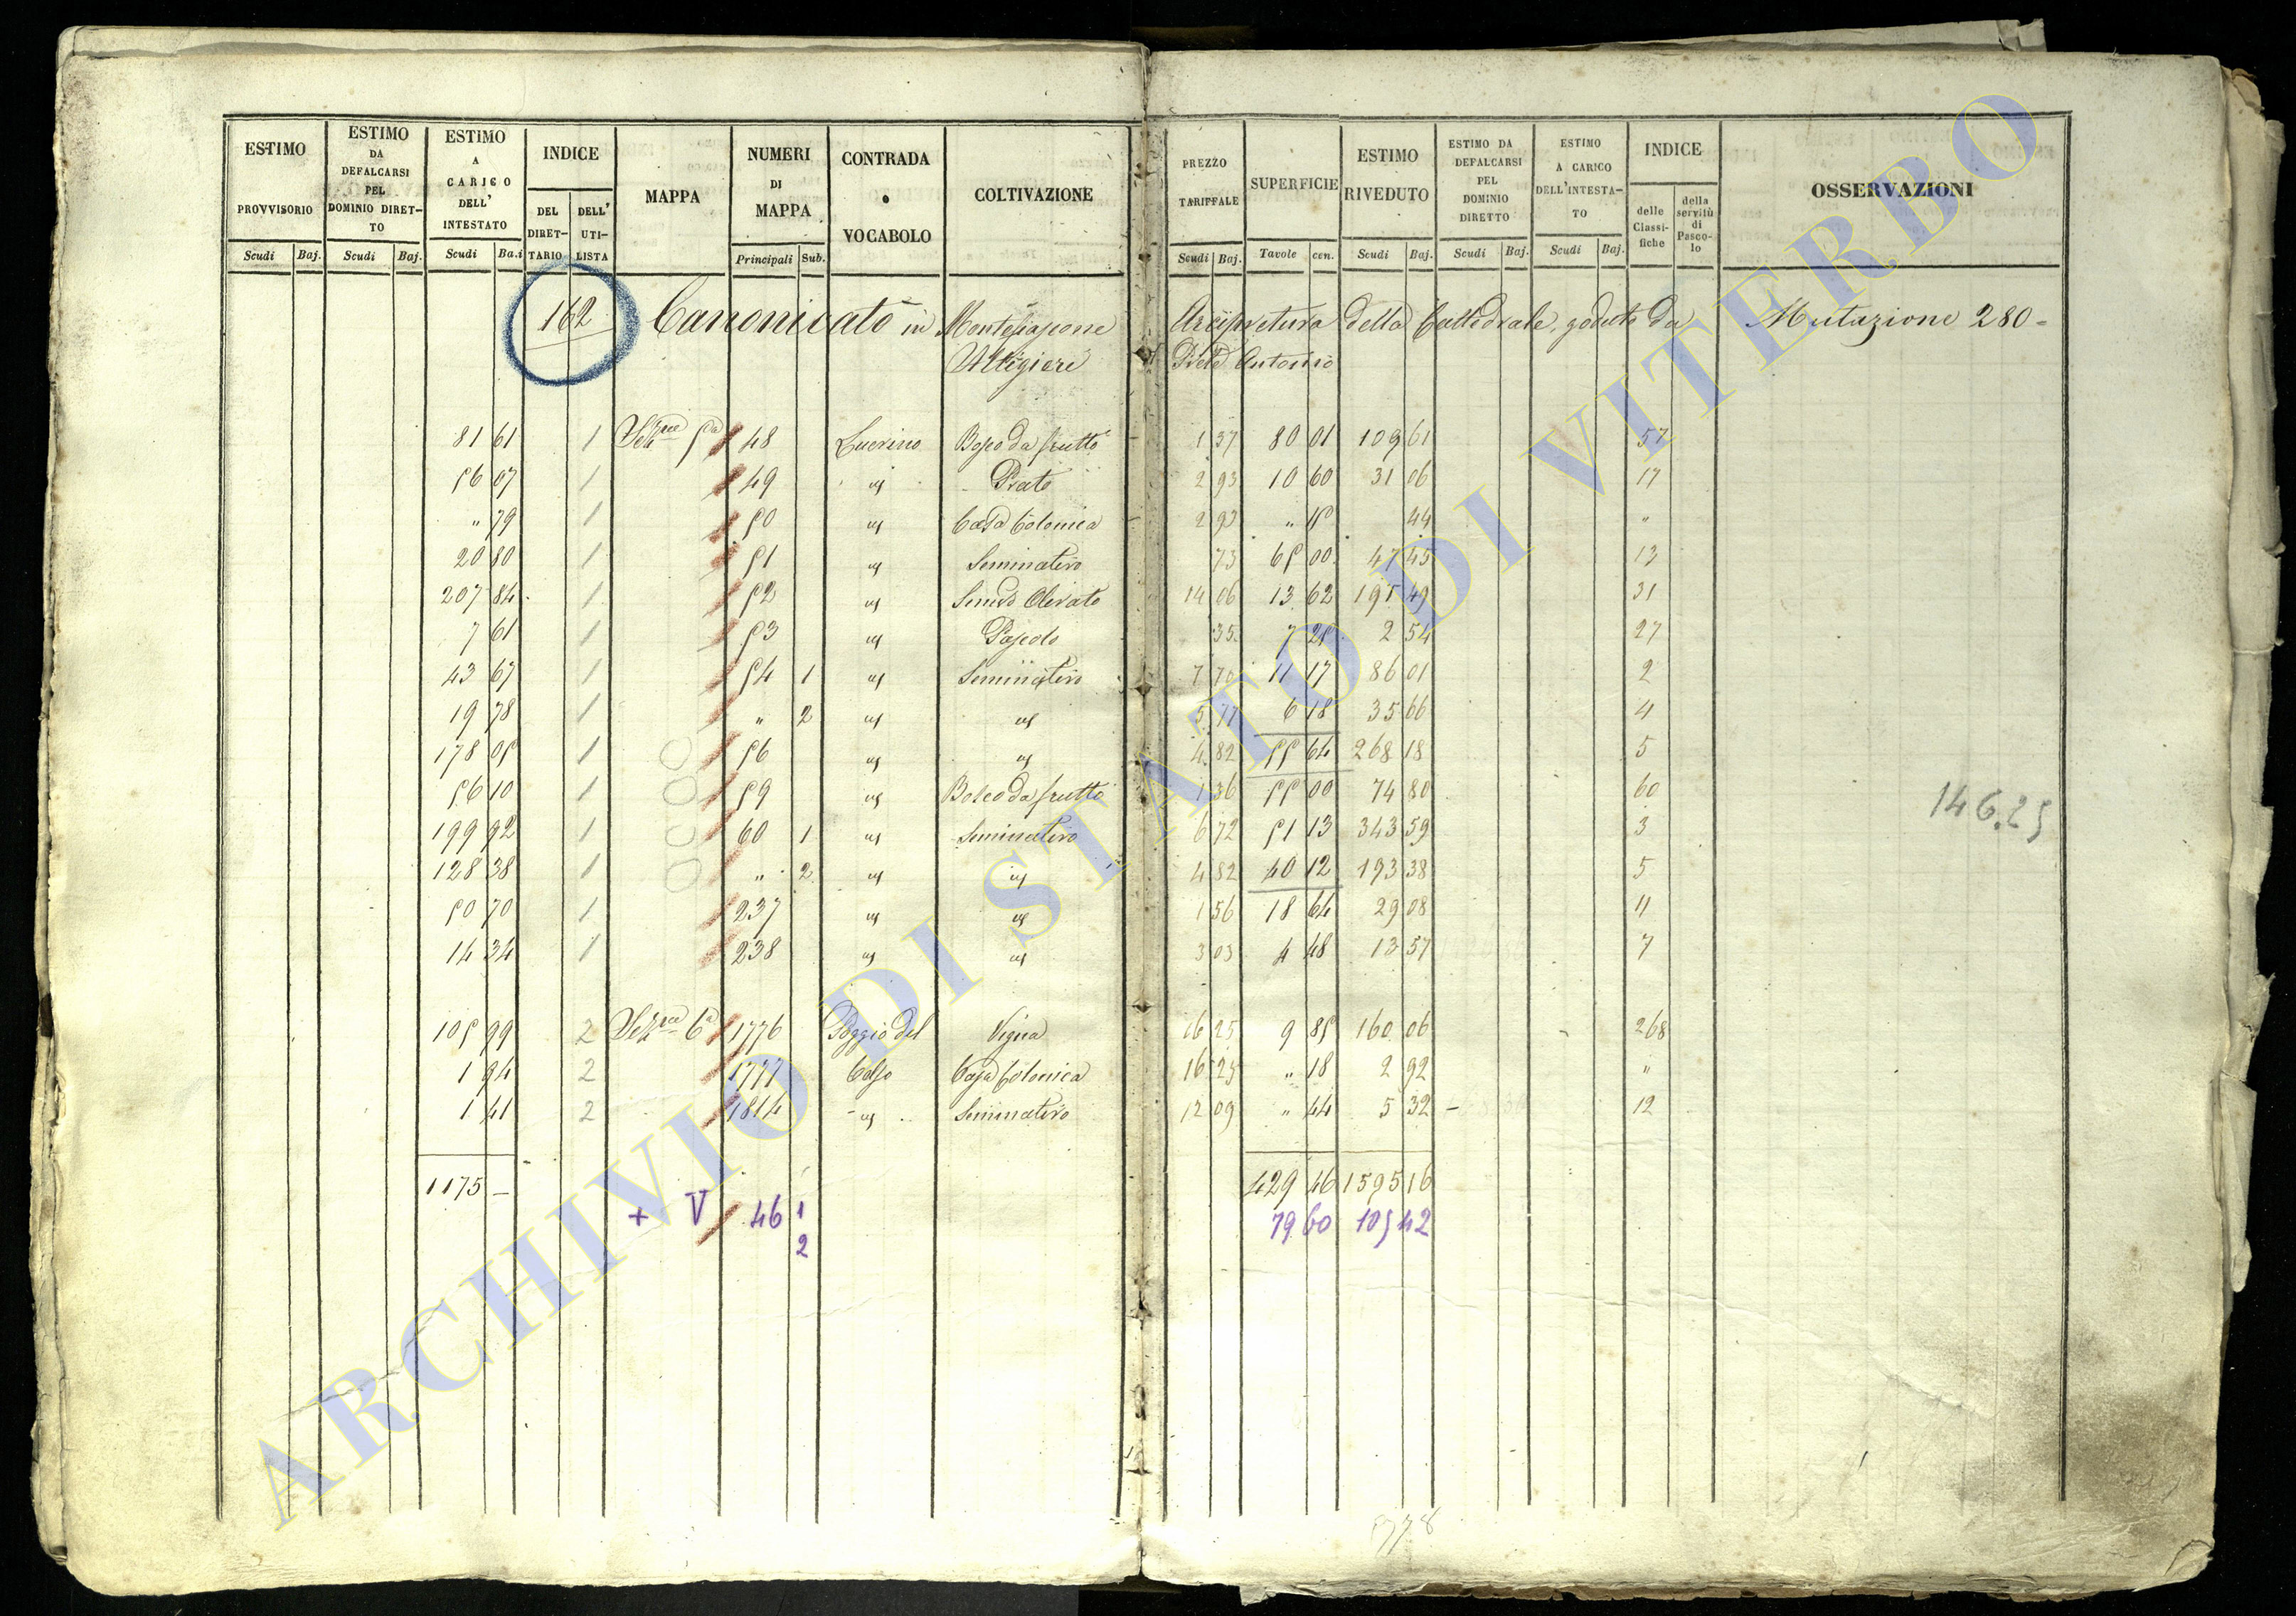 ESTIMO PROVVISORIO | ESTIMO DA DEFALCARSI PEL DOMINIO DIRETTO | ESTIMO A CARICO DELL' INTESTATO | INDICE DEL DIRETTARIO | DELL' UTILISTA | MAPPA | NUMERI DI MAPPA | CONTRADA o VOCABOLO | COLTIVAZIONE | PREZZO TARIFFALE | SUPERFICIE | ESTIMO RIVEDUTO | ESTIMO DA DEFALCARSI PEL DOMINIO DIRETTO | ESTIMO A CARICO DELL'INTESTATO | INDICE delle Classifiche | della servitù di Pascolo | OSSERVAZIONI
Scudi Baj. | Scudi Baj. | Scudi Baj | Principali Sub. | Scudi Baj. | Tavole cen. | Scudi Baj. | Scudi Baj. | Scudi Baj.
162 Canonicato in Montefiascone Arcipretura della Cattedrale, goduto da Mutazione 280=
Antonio
81 61 1 Sezne 5a 48 Bosco da frutto 1 37 80 01 109 61 57
56 07 1 49 " Prato 2 93 10 60 31 06 17
" 79 1 50 " Casa Colonica 2 93 " 15 44 "
20 80 1 51 " Seminativo 73 65 00 47 45 13
207 84 1 52 " Semvo Olivato 14 06 13 62 191 49 31
7 61 1 53 " Pascolo 35 7 25 2 54 27
43 67 1 54 1 " Seminativo 7 70 11 17 86 01 2
19 78 1 " 2 " " 5 77 6 18 35 66 4
178 05 1 56 " " 4 82 55 64 268 18 5
56 10 1 59 " Bosco da frutto 1 36 55 00 74 80 60
199 92 1 60 1 " Seminativo 6 72 51 13 343 59 3
128 38 1 " 2 " " 4 82 40 12 193 38 5
50 70 1 237 " " 1 56 18 64 29 08 11
14 34 1 238 " " 3 03 4 48 13 57 7
146.25
105 99 2 Sezne 6a 1776 Poggio del Vigna 16 25 9 85 160 06 268
1 94 2 1777 Casa Colonica 16 25 " 18 2 92 "
1 41 2 1814 " Seminativo 12 09 " 44 5 32 - 12
1175 - 429 46 1595 16
+ V 46 1 79 60 105 42
2
ARCHIVIO DI STATO DI VITERBO